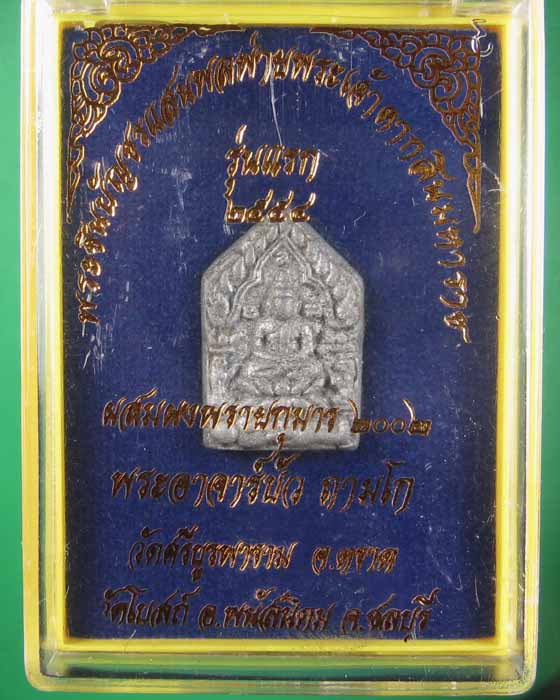 พระชินบัญชรแสนพลพ่ายพระเจ้าตากสินมหาราช
รุ่นแรก
๒๕๕๔
ผสมผงพรายกุมาร ๒๐๐๒
พระอาจารย์บัว ถามโก
วัดศรีบูรพาราม จ.ตราด
วัดโบสถ์ อ.พนัสนิคม จ.ชลบุรี